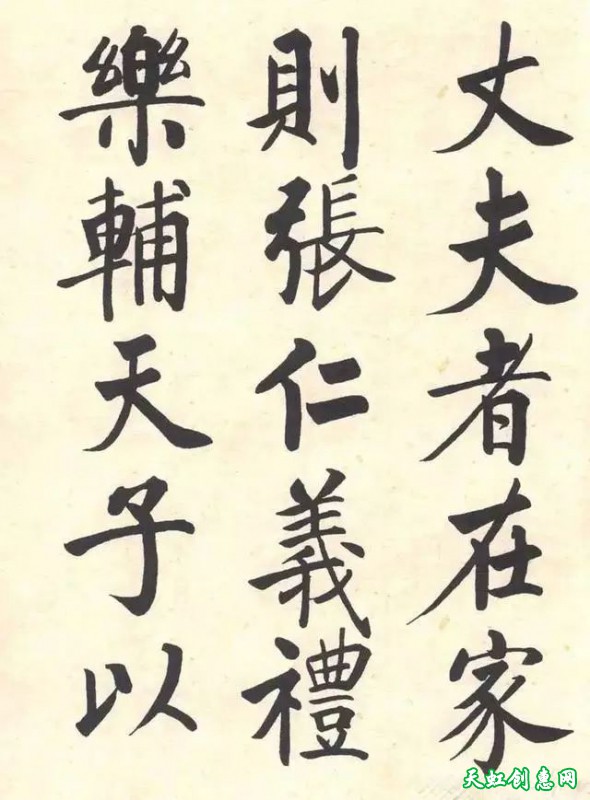 丈夫者在家
則張仁義禮
樂輔天子以
天虹创惠网